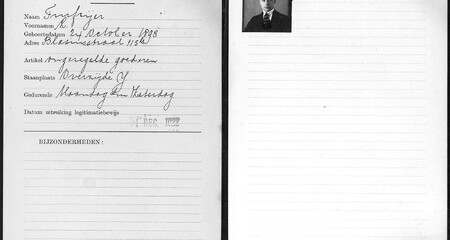 Naam
Voornamen K.
Geboortedatum 24 October 1898
Adres 115
Artikel Ongeregelde goederen
Staanplaats Overzijde Y
Gedurende Maandag t/m Zaterdag
Datum uitreiking legitimatiebewijs DEC. 1922
BIJZONDERHEDEN: